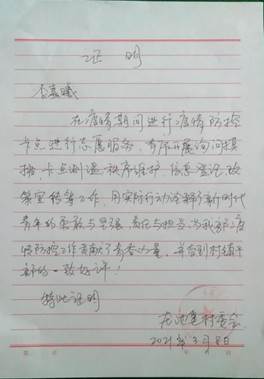 证明
李
在疫情期间进行疫情防控
卡点进行志愿服务,
排、卡点测温秩序维护、信息登记、政
策宣传等工作,用实际行动诠释了新时代
青年的勇敢与坚强、责任与担当,为我部疫
情防控工作贡献了青春力量,并得到村镇干
部的一致好评!
特此证明
村委会
2021年3月8日